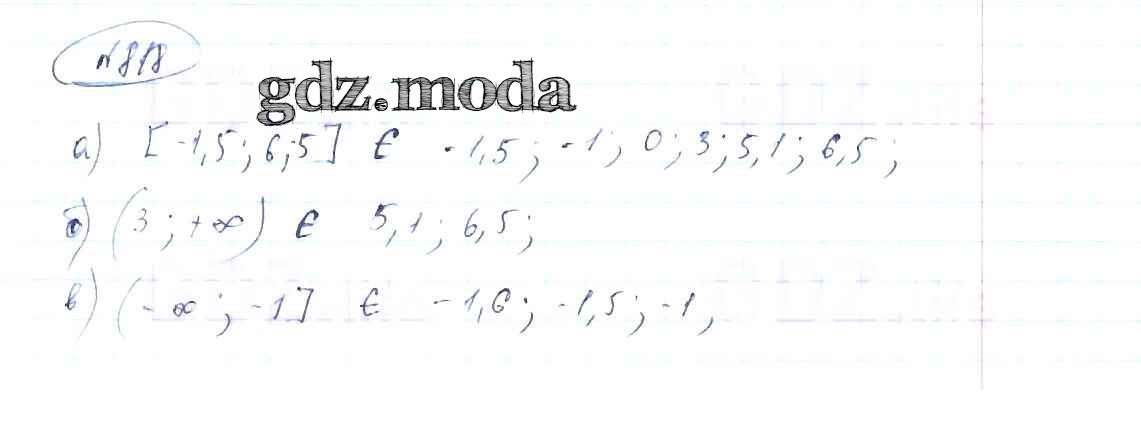 №818
gdz.moda
а) [-1,5; 6;5] Є -1,5; -1; 0; 3; 5,1; 6,5;
б) (3; +∞) Є 5,1; 6,5;
в) (-∞; -1] Є -1,6; -1,5; -1,